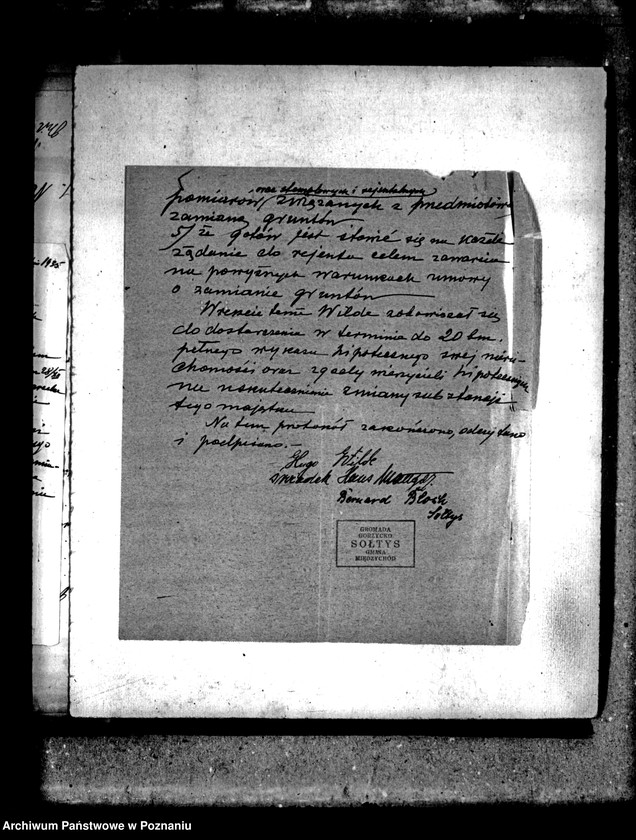 oraz stemplowych i rejentalnych
pomiarów związanych z przedmiotową
zamianą gruntów
5/ że gotów jest stawić się na każde
żądanie do rejenta celem zawarcia
na powyższych warunkach umowy
o zamianie gruntów
Wreszcie tenże Wilde zobowiązał się
do dostarczenia w terminie do 20 bm.
pełnego wykazu hipotecznego swej nieru-
chomości oraz zgody wierzycieli hipotecznych
na uskutecznienie zmiany substancji
tego majątku
Na tem protokół zakończono, odczytano
i podpisano.-
Hugo Wilde
świadek Hans
Bernard Block
Sołtys
GROMADA
GORZYCKO
SOŁTYS
GMINA
MIĘDZYCHÓD
Archiwum Państwowe w Poznaniu